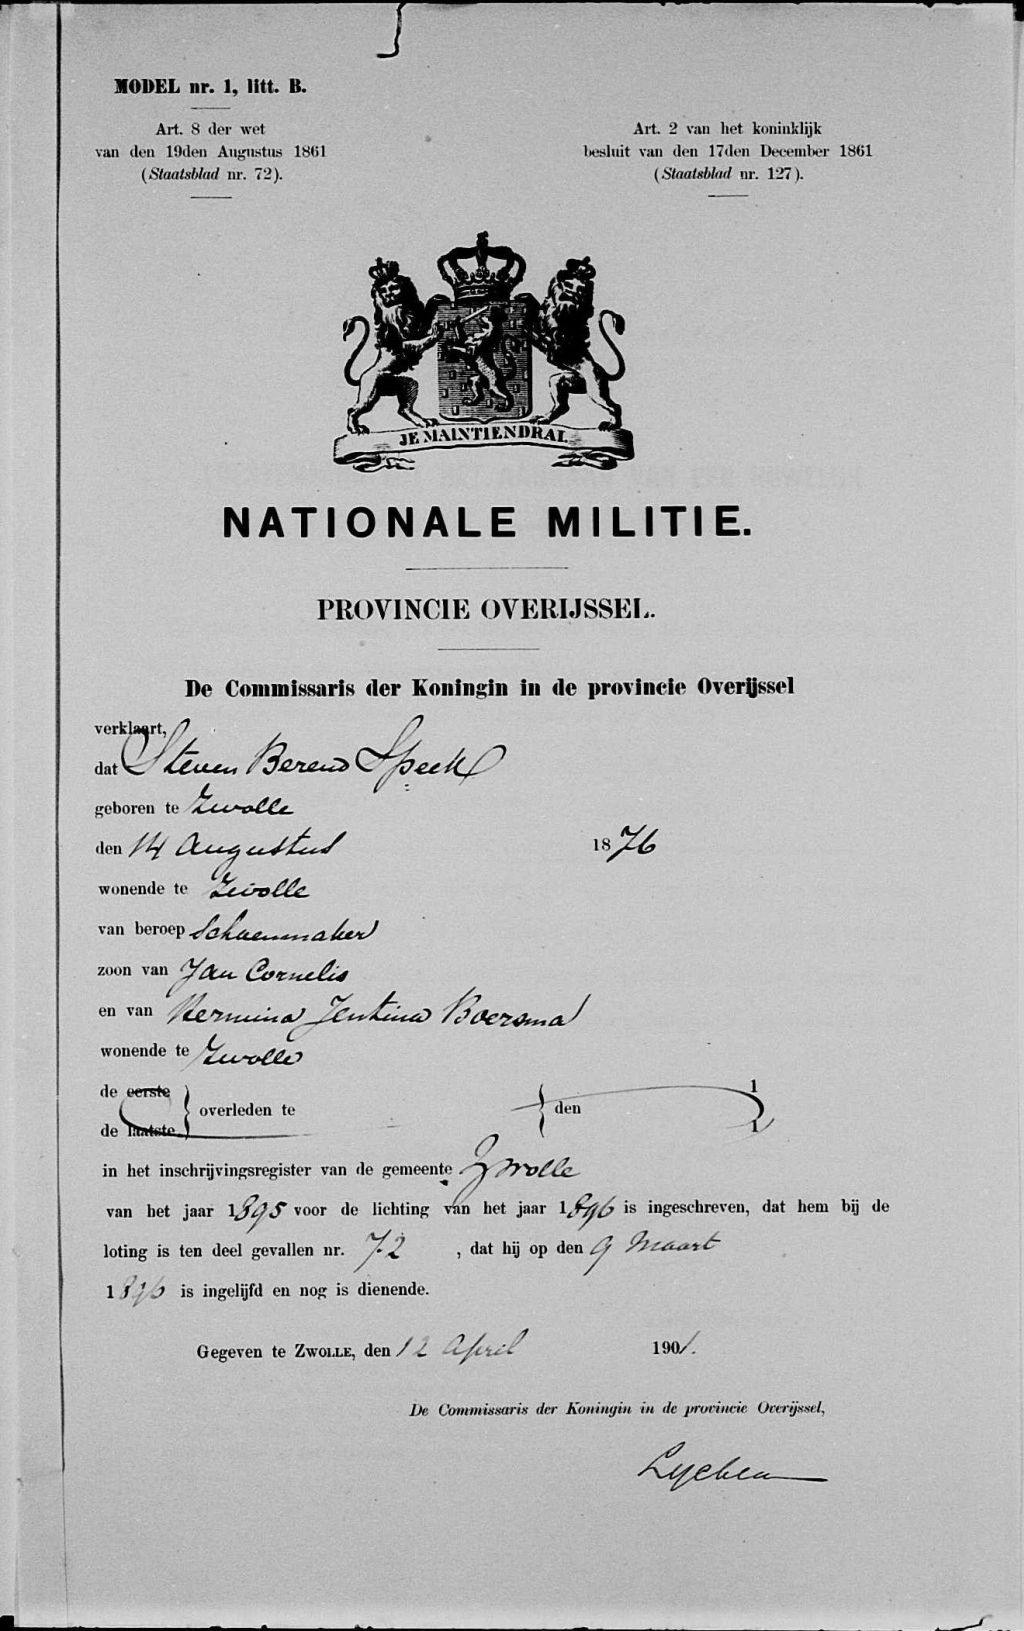 MODEL nr. 1, litt. B.
Art. 8 der wet
van den 19den Augustus 1861
(Staatsblad nr. 72).
Art. 2 van het koninklijk
besluit van den 17den December 1861
(Staatsblad nr. 127).
JE MAINTIENDRAI
NATIONALE MILITIE.
PROVINCIE OVERIJSSEL.
De Commissaris der Koningin in de provincie Overijssel
verklaart,
dat Steven Berend Speek
geboren te Zwolle
den 14 Augustus 1876
wonende te Zwolle
van beroep Schoenmaker
zoon van Jan Cornelis
en van Hermina Jentina Boersma
wonende te Zwolle
de eerste
overleden te den 1
de laatste 1
in het inschrijvingsregister van de gemeente Zwolle
van het jaar 1895 voor de lichting van het jaar 1896 is ingeschreven, dat hem bij de
loting is ten deel gevallen nr. 72 , dat hij op den 9 Maart
1896 is ingelijfd en nog is dienende.
Gegeven te ZWOLLE, den 12 April 1901.
De Commissaris der Koningin in de provincie Overijssel,